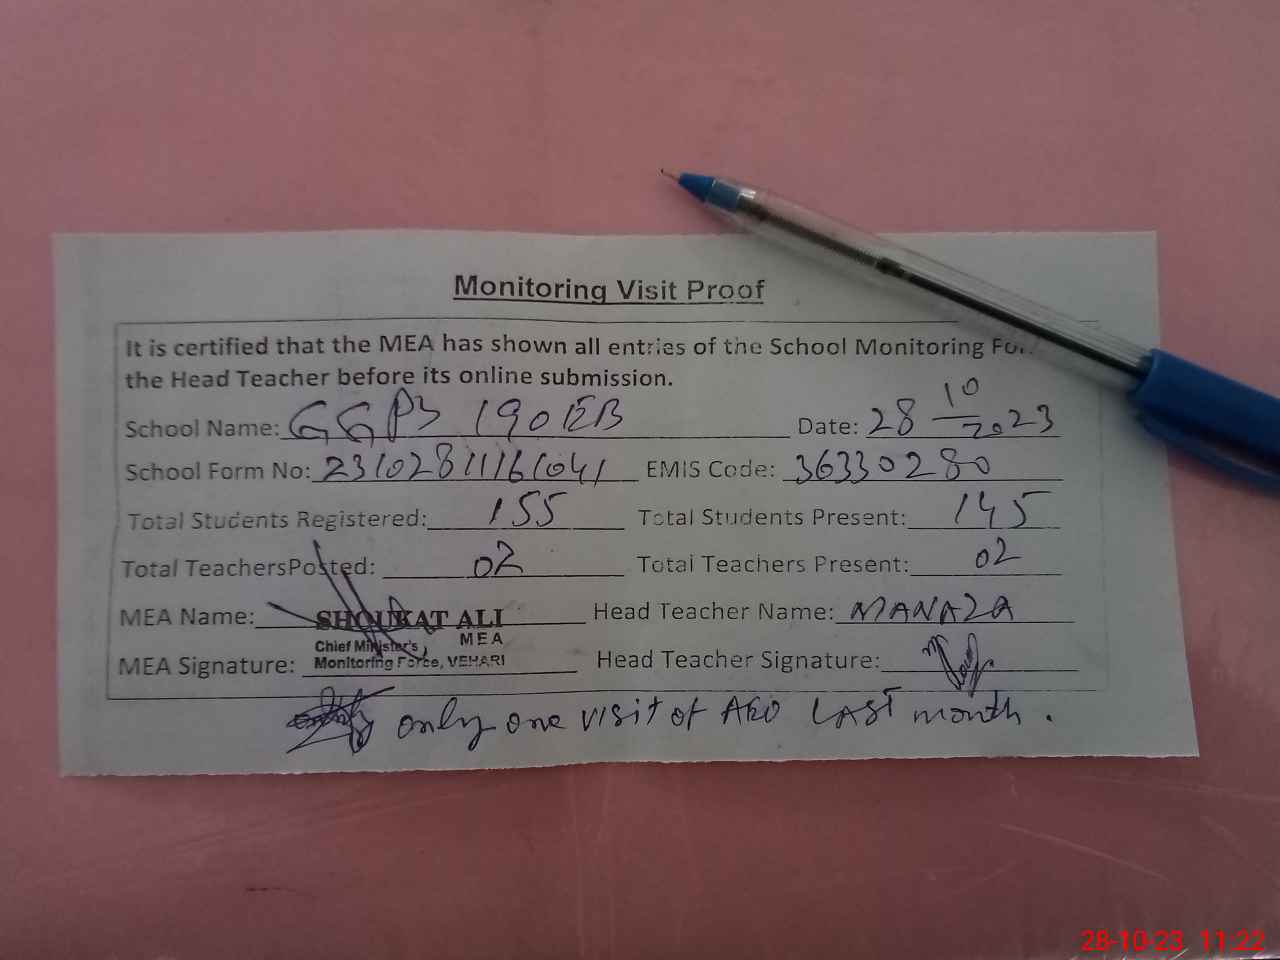 Monitoring Visit Proof
It is certified that the MEA has shown all entries of the School Monitoring
the Head Teacher before its online submission.
School Name: GGPS 190 EB Date: 28 10/2023
School Form No: 23102811161041 EMIS Code: 36330280
Total Students Registered: 155 Total Students Present: 145
Total TeachersPosted: 02 Total Teachers Present: 02
MEA Name: SHOUKAT ALI Head Teacher Name: MANAZA
MEA
Chief Minister's
MEA Signature: Monitoring Force, VEHARI Head Teacher Signature:
only one visit of AEO LAST month.
28-10-23 11:22